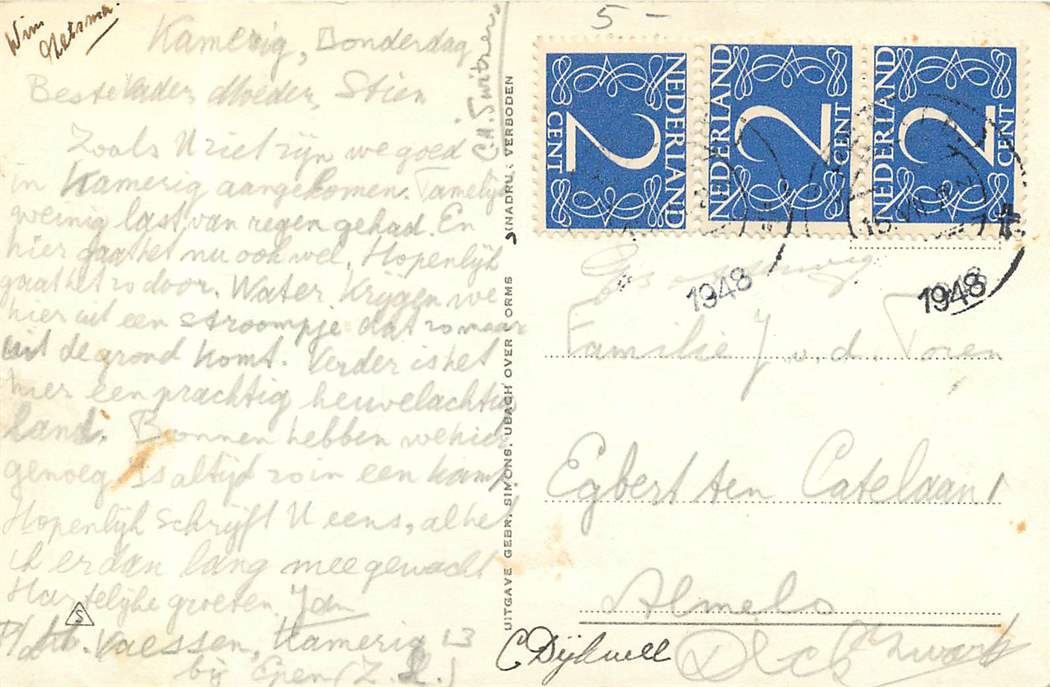 Wim
5 -
Kamerig, Donderdag
Beste Vader, Moeder, Stien
Zoals U ziet zijn we goed
in Kamerig aangekomen. Tamelijk
weinig last van regen gehad. En
hier gaat het nu ook wel. Hopenlijk
gaat het zo door. Water krijgen we
hier uit een stroompje dat zo maar
uit de grond komt. Verder is het
hier een prachtig heuvelachtig
land. Bronnen hebben we hier
genoeg. Is altijd zo in een kamp
Hopenlijk schrijft U eens, al het
ik er dan lang mee gewacht
Hartelijke groeten, Jan
P/a Vaessen, Kamerig 13
bij Epen (Z. L.)
S
UITGAVE GEBR. SIMONS, UBACH OVER WORMS
NADRUK VERBODEN
NEDERLAND
2
CENT
NEDERLAND
2
CENT
NEDERLAND
2
CENT
1948
1948
Familie J v.d. Toren
Egbert ten Catelaan 1
Almelo
C Dijkwel